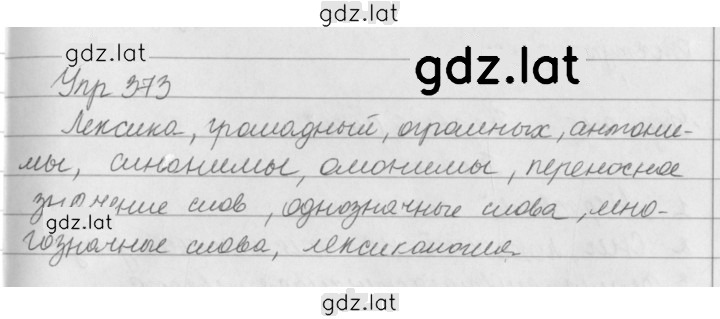 gdz.lat
gdz.lat
gdz.lat
Упр 373
Лексика, громадный, огромных, антони-
мы, синонимы, омонимы, переносное
значение слов, однозначные слова, мно-
gdz.lat
гозначные слова, лексикология
gdz.lat